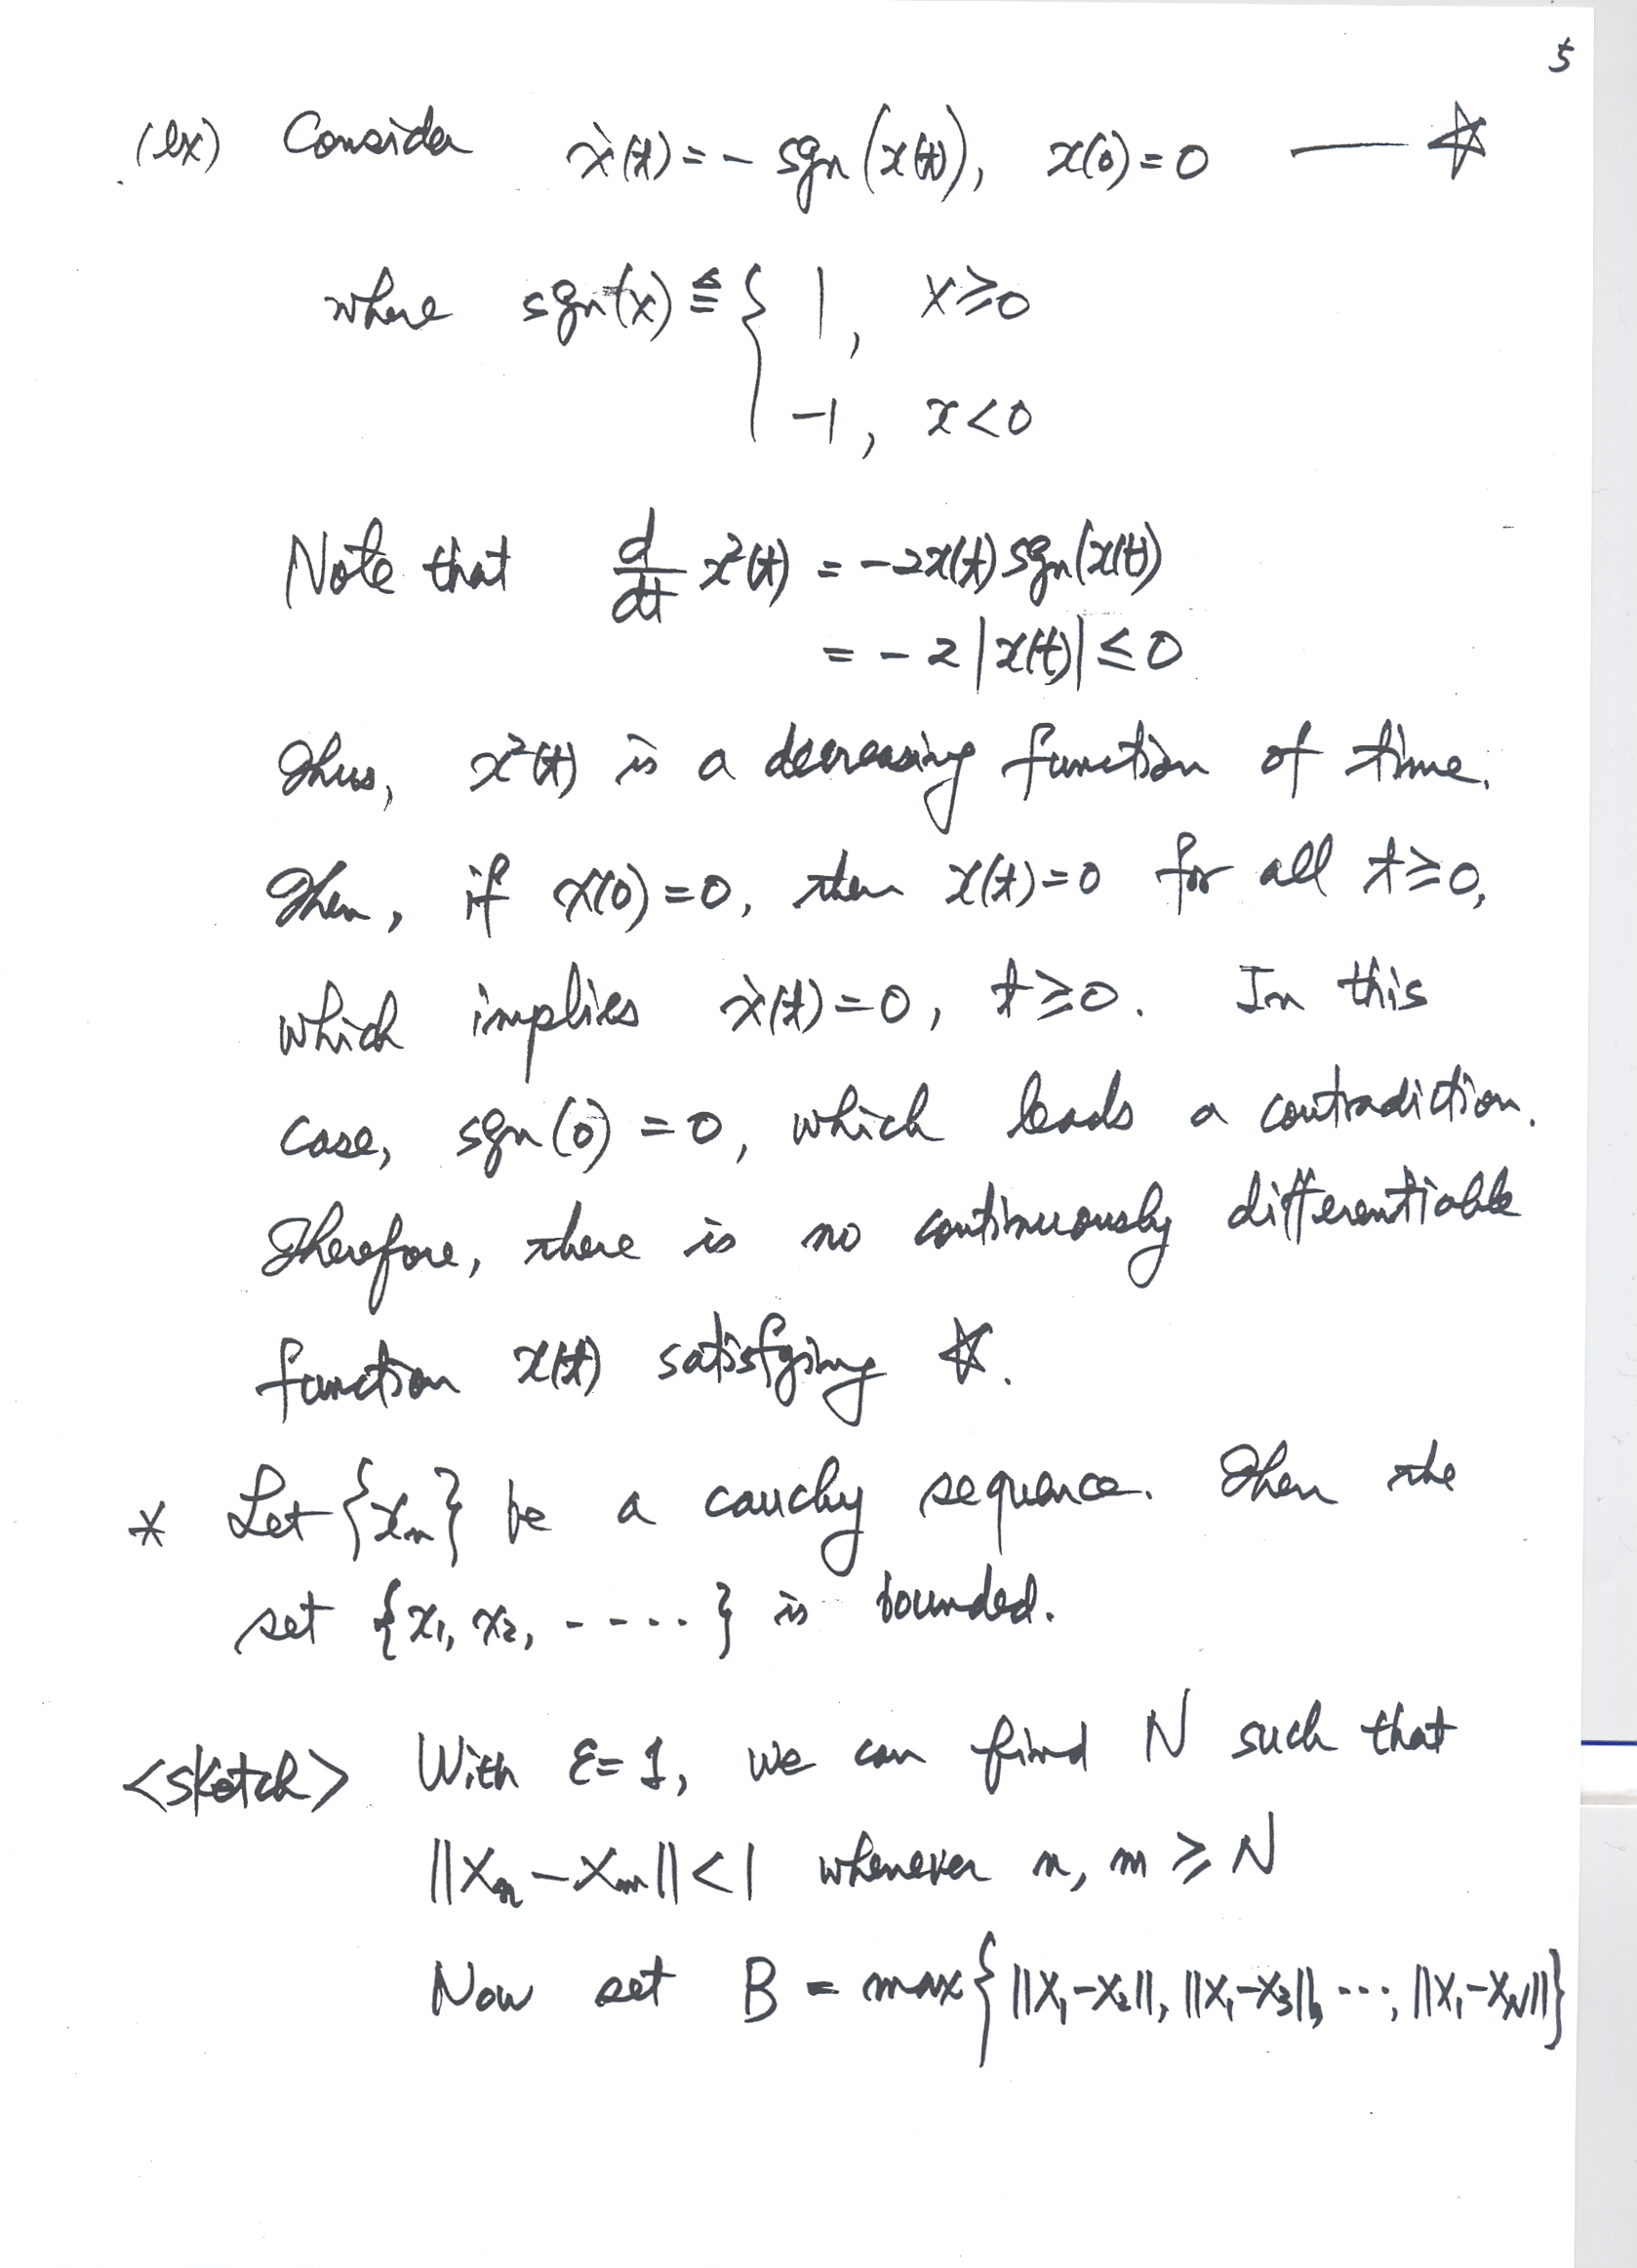 5
(ex) Consider ẋ(t) = - sgn(x(t)), x(0) = 0 —— ☆
where sgn(x) ≜ { 1, x ≥ 0
-1, x < 0
Note that d/dt x²(t) = -2x(t) sgn(x(t)
= -2|x(t)| ≤ 0
Thus, x²(t) is a decreasing function of time.
Then, if x(0) = 0, then x(t) = 0 for all t ≥ 0,
which implies ẋ(t) = 0, t ≥ 0. In this
case, sgn(0) = 0, which leads a contradiction.
Therefore, there is no continuously differentiable
function x(t) satisfying ☆.
* Let {xn} be a cauchy sequence. Then the
set {x1, x2, -----} is bounded.
<sketch> With ε = 1, we can find N such that
||xn - xm|| < 1 whenever n, m ≥ N
Now set B = max{||x1-x2||, ||x1-x3||, ..., ||x1-xN||}